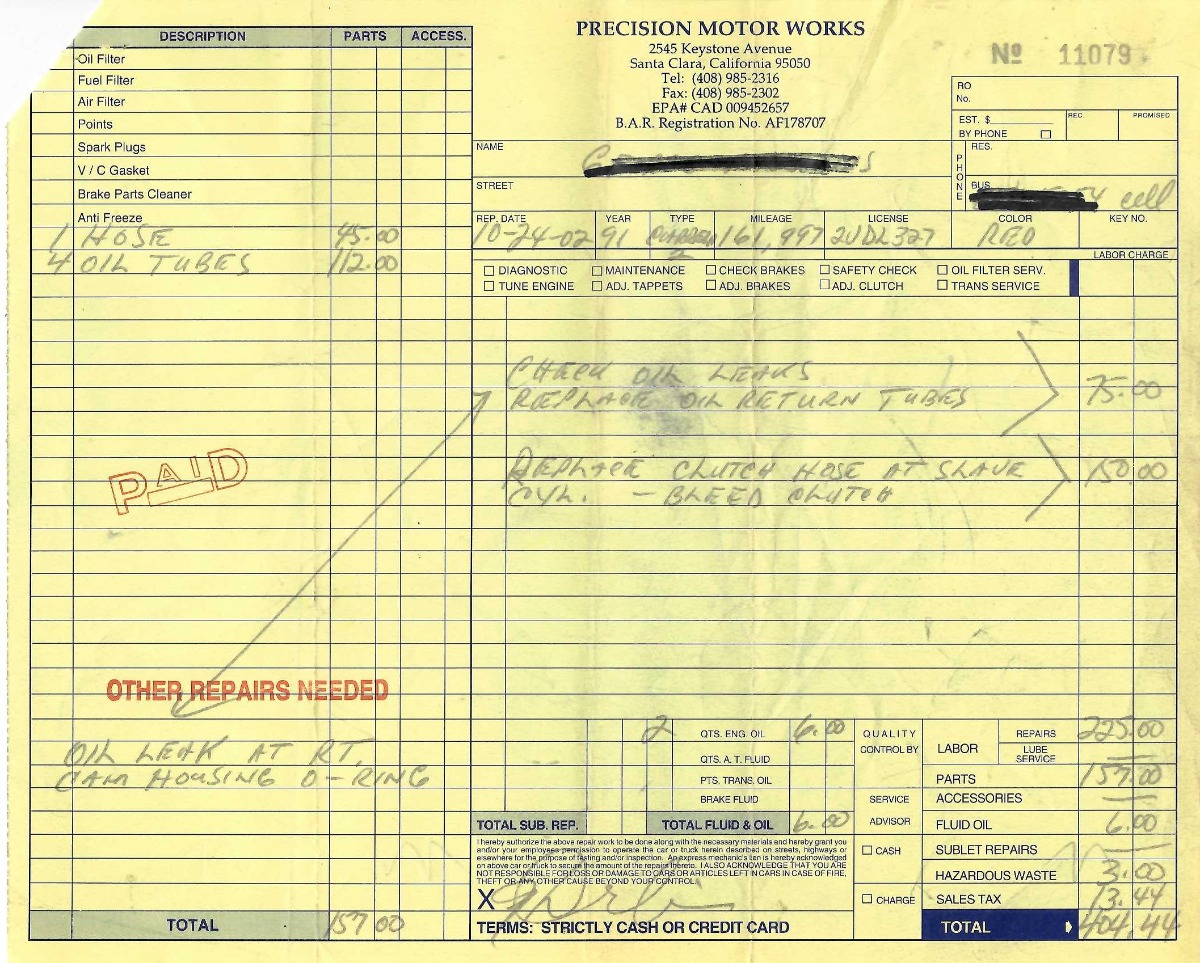 PRECISION MOTOR WORKS
2545 Keystone Avenue
Santa Clara, California 95050
Tel: (408) 985-2316
Fax: (408) 985-2302
EPA# CAD 009452657
B.A.R. Registration No. AF178707
Nº 11079
RO No.
EST. $
BY PHONE
REC.
PROMISED
NAME
STREET
PHONE
RES.
BUS.
cell
REP. DATE YEAR TYPE MILEAGE LICENSE COLOR KEY NO.
10-24-02 91 161,997 2UDL327 RED
LABOR CHARGE
DIAGNOSTIC MAINTENANCE CHECK BRAKES SAFETY CHECK OIL FILTER SERV.
TUNE ENGINE ADJ. TAPPETS ADJ. BRAKES ADJ. CLUTCH TRANS SERVICE
DESCRIPTION PARTS ACCESS.
Oil Filter
Fuel Filter
Air Filter
Points
Spark Plugs
V / C Gasket
Brake Parts Cleaner
Anti Freeze
1 HOSE 45.00
4 OIL TUBES 112.00
CHECK OIL LEAKS
REPLACE OIL RETURN TUBES 75.00
REPLACE CLUTCH HOSE AT SLAVE 150.00
CYL. - BLEED CLUTCH
PAID
OTHER REPAIRS NEEDED
OIL LEAK AT RT.
CAM HOUSING O-RING
TOTAL 157 00
2 QTS. ENG. OIL 6.00
QTS. A. T. FLUID
PTS. TRANS. OIL
BRAKE FLUID
TOTAL SUB. REP. TOTAL FLUID & OIL 6.00
I hereby authorize the above repair work to be done along with the necessary materials and hereby grant you
and/or your employees permission to operate the car or truck herein described on streets, highways or
elsewhere for the purpose of testing and/or inspection. An express mechanic's lien is hereby acknowledged
on above car or truck to secure the amount of the repairs thereto. I ALSO ACKNOWLEDGE THAT YOU ARE
NOT RESPONSIBLE FOR LOSS OR DAMAGE TO CARS OR ARTICLES LEFT IN CARS IN CASE OF FIRE,
THEFT OR ANY OTHER CAUSE BEYOND YOUR CONTROL.
X
TERMS: STRICTLY CASH OR CREDIT CARD
QUALITY CONTROL BY
SERVICE ADVISOR
CASH
CHARGE
LABOR REPAIRS 225.00
LUBE SERVICE
PARTS 157.00
ACCESSORIES —
FLUID OIL 6.00
SUBLET REPAIRS —
HAZARDOUS WASTE 3.00
SALES TAX 13.44
TOTAL 404.44